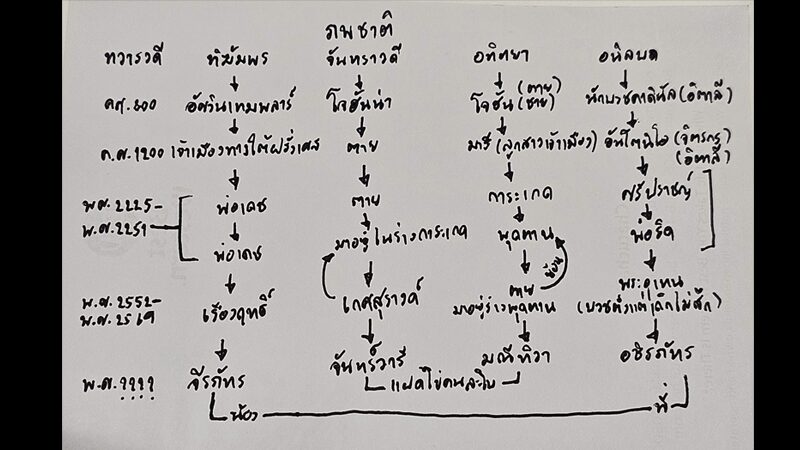 ภพชาติ
ทวารวดี ทิฆัมพร จันทราวดี อทิตยา อนิลบถ
คศ.800 อัศวินเทมพลาร์ โจฮันน่า โจฮัน (ตาย) (ชาย) นักบวชคาดินัล (อิตาลี)
ค.ศ.1200 เจ้าเมืองทางใต้ฝรั่งเศส ตาย มารี (ลูกสาวเจ้าเมือง) อันโตนิโอ (จิตรกร) (อิตาลี)
พ.ศ.2225- พ่อเดช ตาย การะเกด ศรีปราชญ์
พ.ศ.2251 พ่อเดช มาอยู่ในร่างการะเกด พุดตาน พ่อริด
ย้อน
พ.ศ.2552- เรืองฤทธิ์ เกศสุรางค์ ตาย พระอุเทน
พ.ศ.2569 มาอยู่ร่างพุดตาน (บวชตั้งแต่เด็กไม่สึก)
พ.ศ.???? จีรภัทร จันทร์วารี มณีทิวา อชิรภัทร
แฝดไข่คนละใบ
น้อง พี่